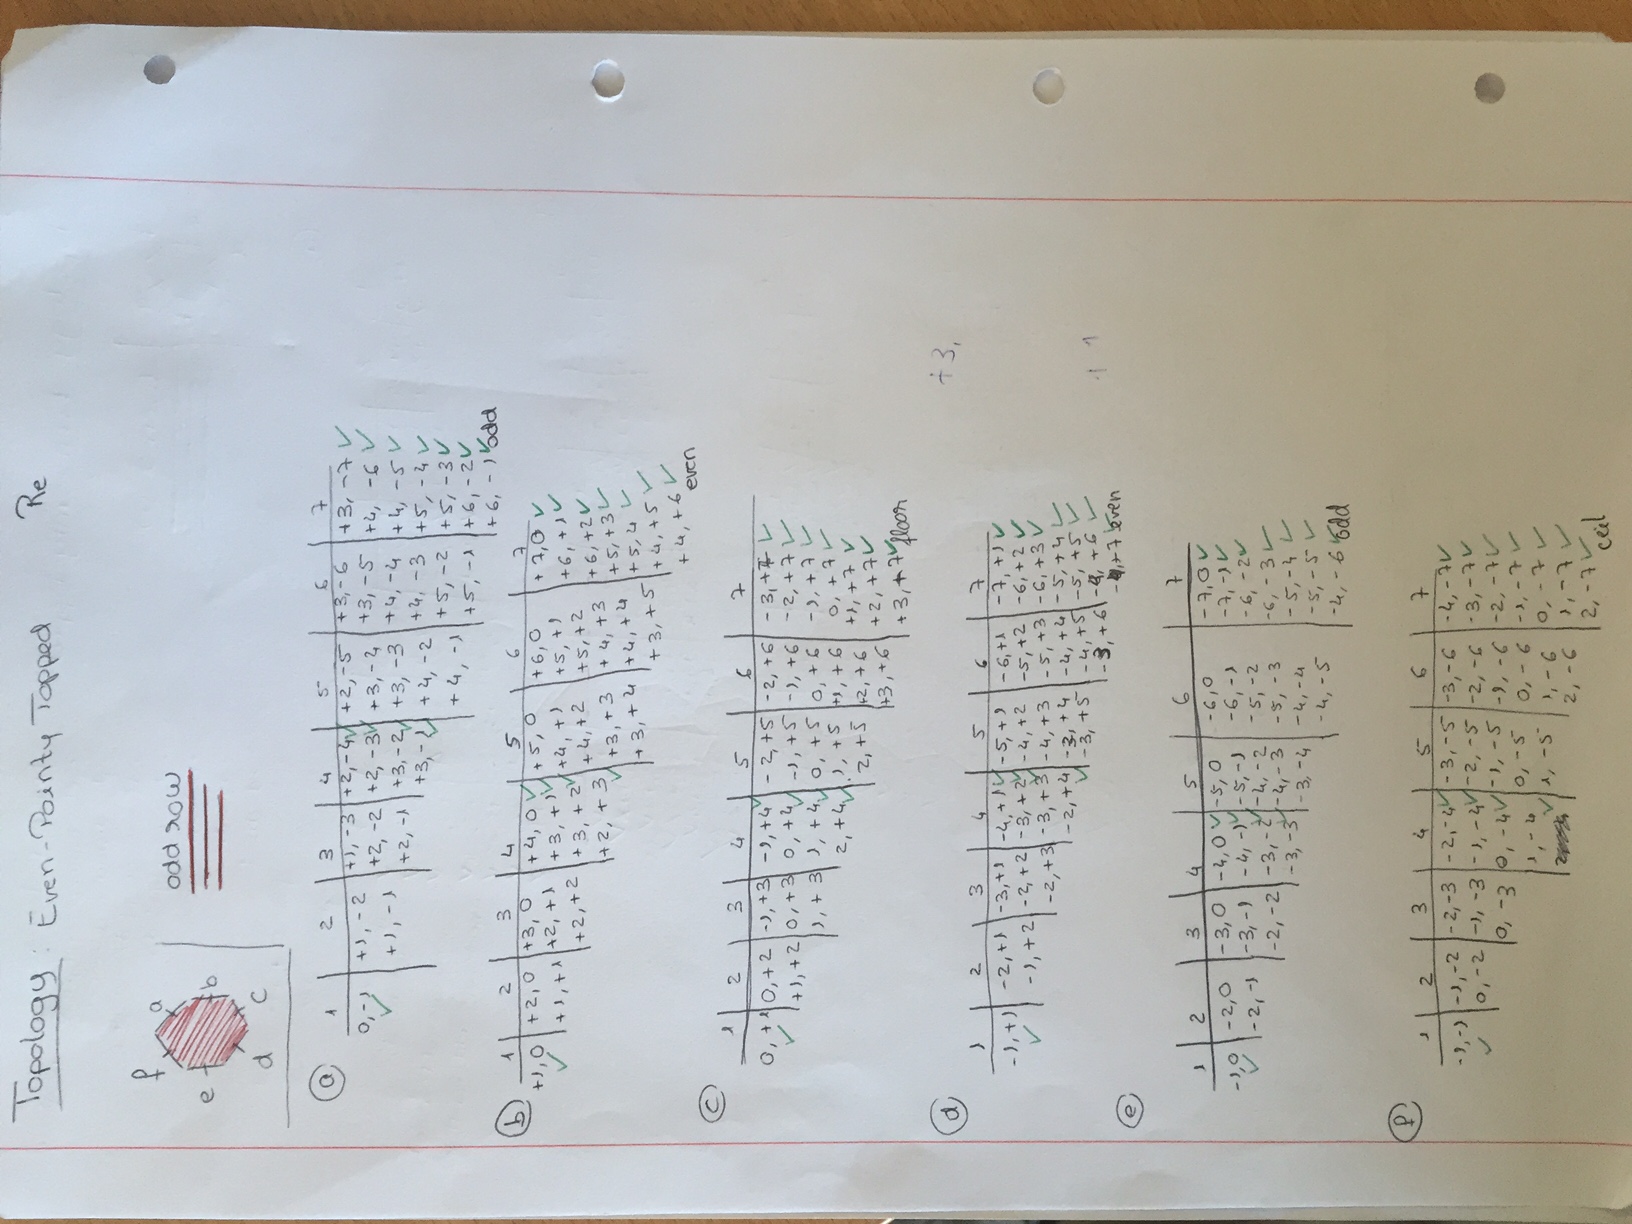 Topology: Even-Pointy Topped Re
f a
e b
d c
odd row
a
1 2 3 4 5 6 7
0,-1 +1,-2 +1,-3 +2,-4 +2,-5 +3,-6 +3,-7
+1,-1 +2,-2 +2,-3 +3,-4 +3,-5 +4,-6
+2,-1 +3,-2 +3,-3 +4,-4 +4,-5
+3,-1 +4,-2 +4,-3 +5,-4
+4,-1 +5,-2 +5,-3
+5,-1 +6,-2
+6,-1 odd
b
1 2 3 4 5 6 7
+1,0 +2,0 +3,0 +4,0 +5,0 +6,0 +7,0
+1,+1 +2,+1 +3,+1 +4,+1 +5,+1 +6,+1
+2,+2 +3,+2 +4,+2 +5,+2 +6,+2
+2,+3 +3,+3 +4,+3 +5,+3
+3,+4 +4,+4 +5,4
+3,+5 +4,+5
+4,+6
even
c
1 2 3 4 5 6 7
0,+1 0,+2 -1,+3 -1,+4 -2,+5 -2,+6 -3,+7
+1,+2 0,+3 0,+4 -1,+5 -1,+6 -2,+7
1,+3 1,+4 0,+5 0,+6 -1,+7
2,+4 1,+5 +1,+6 0,+7
2,+5 +2,+6 +1,+7
+3,+6 +2,+7
+3,+7
floor
d
1 2 3 4 5 6 7
-1,+1 -2,+1 -3,+1 -4,+1 -5,+1 -6,+1 -7,+1
-1,+2 -2,+2 -3,+2 -4,+2 -5,+2 -6,+2
-2,+3 -3,+3 -4,+3 -5,+3 -6,+3
-2,+4 -3,+4 -4,+4 -5,+4
-3,+5 -4,+5 -5,+5
-3,+6 -4,+6
-4,+7 even
+3,
1 1
e
1 2 3 4 5 6 7
-1,0 -2,0 -3,0 -4,0 -5,0 -6,0 -7,0
-2,-1 -3,-1 -4,-1 -5,-1 -6,-1 -7,-1
-2,-2 -3,-2 -4,-2 -5,-2 -6,-2
-3,-3 -4,-3 -5,-3 -6,-3
-3,-4 -4,-4 -5,-4
-4,-5 -5,-5
-4,-6 odd
f
1 2 3 4 5 6 7
-1,-1 -1,-2 -2,-3 -2,-4 -3,-5 -3,-6 -4,-7
0,-2 -1,-3 -1,-4 -2,-5 -2,-6 -3,-7
0,-3 0,-4 -1,-5 -1,-6 -2,-7
1,-4 0,-5 0,-6 -1,-7
1,-5 1,-6 0,-7
2,-6 1,-7
2,-7
ceil